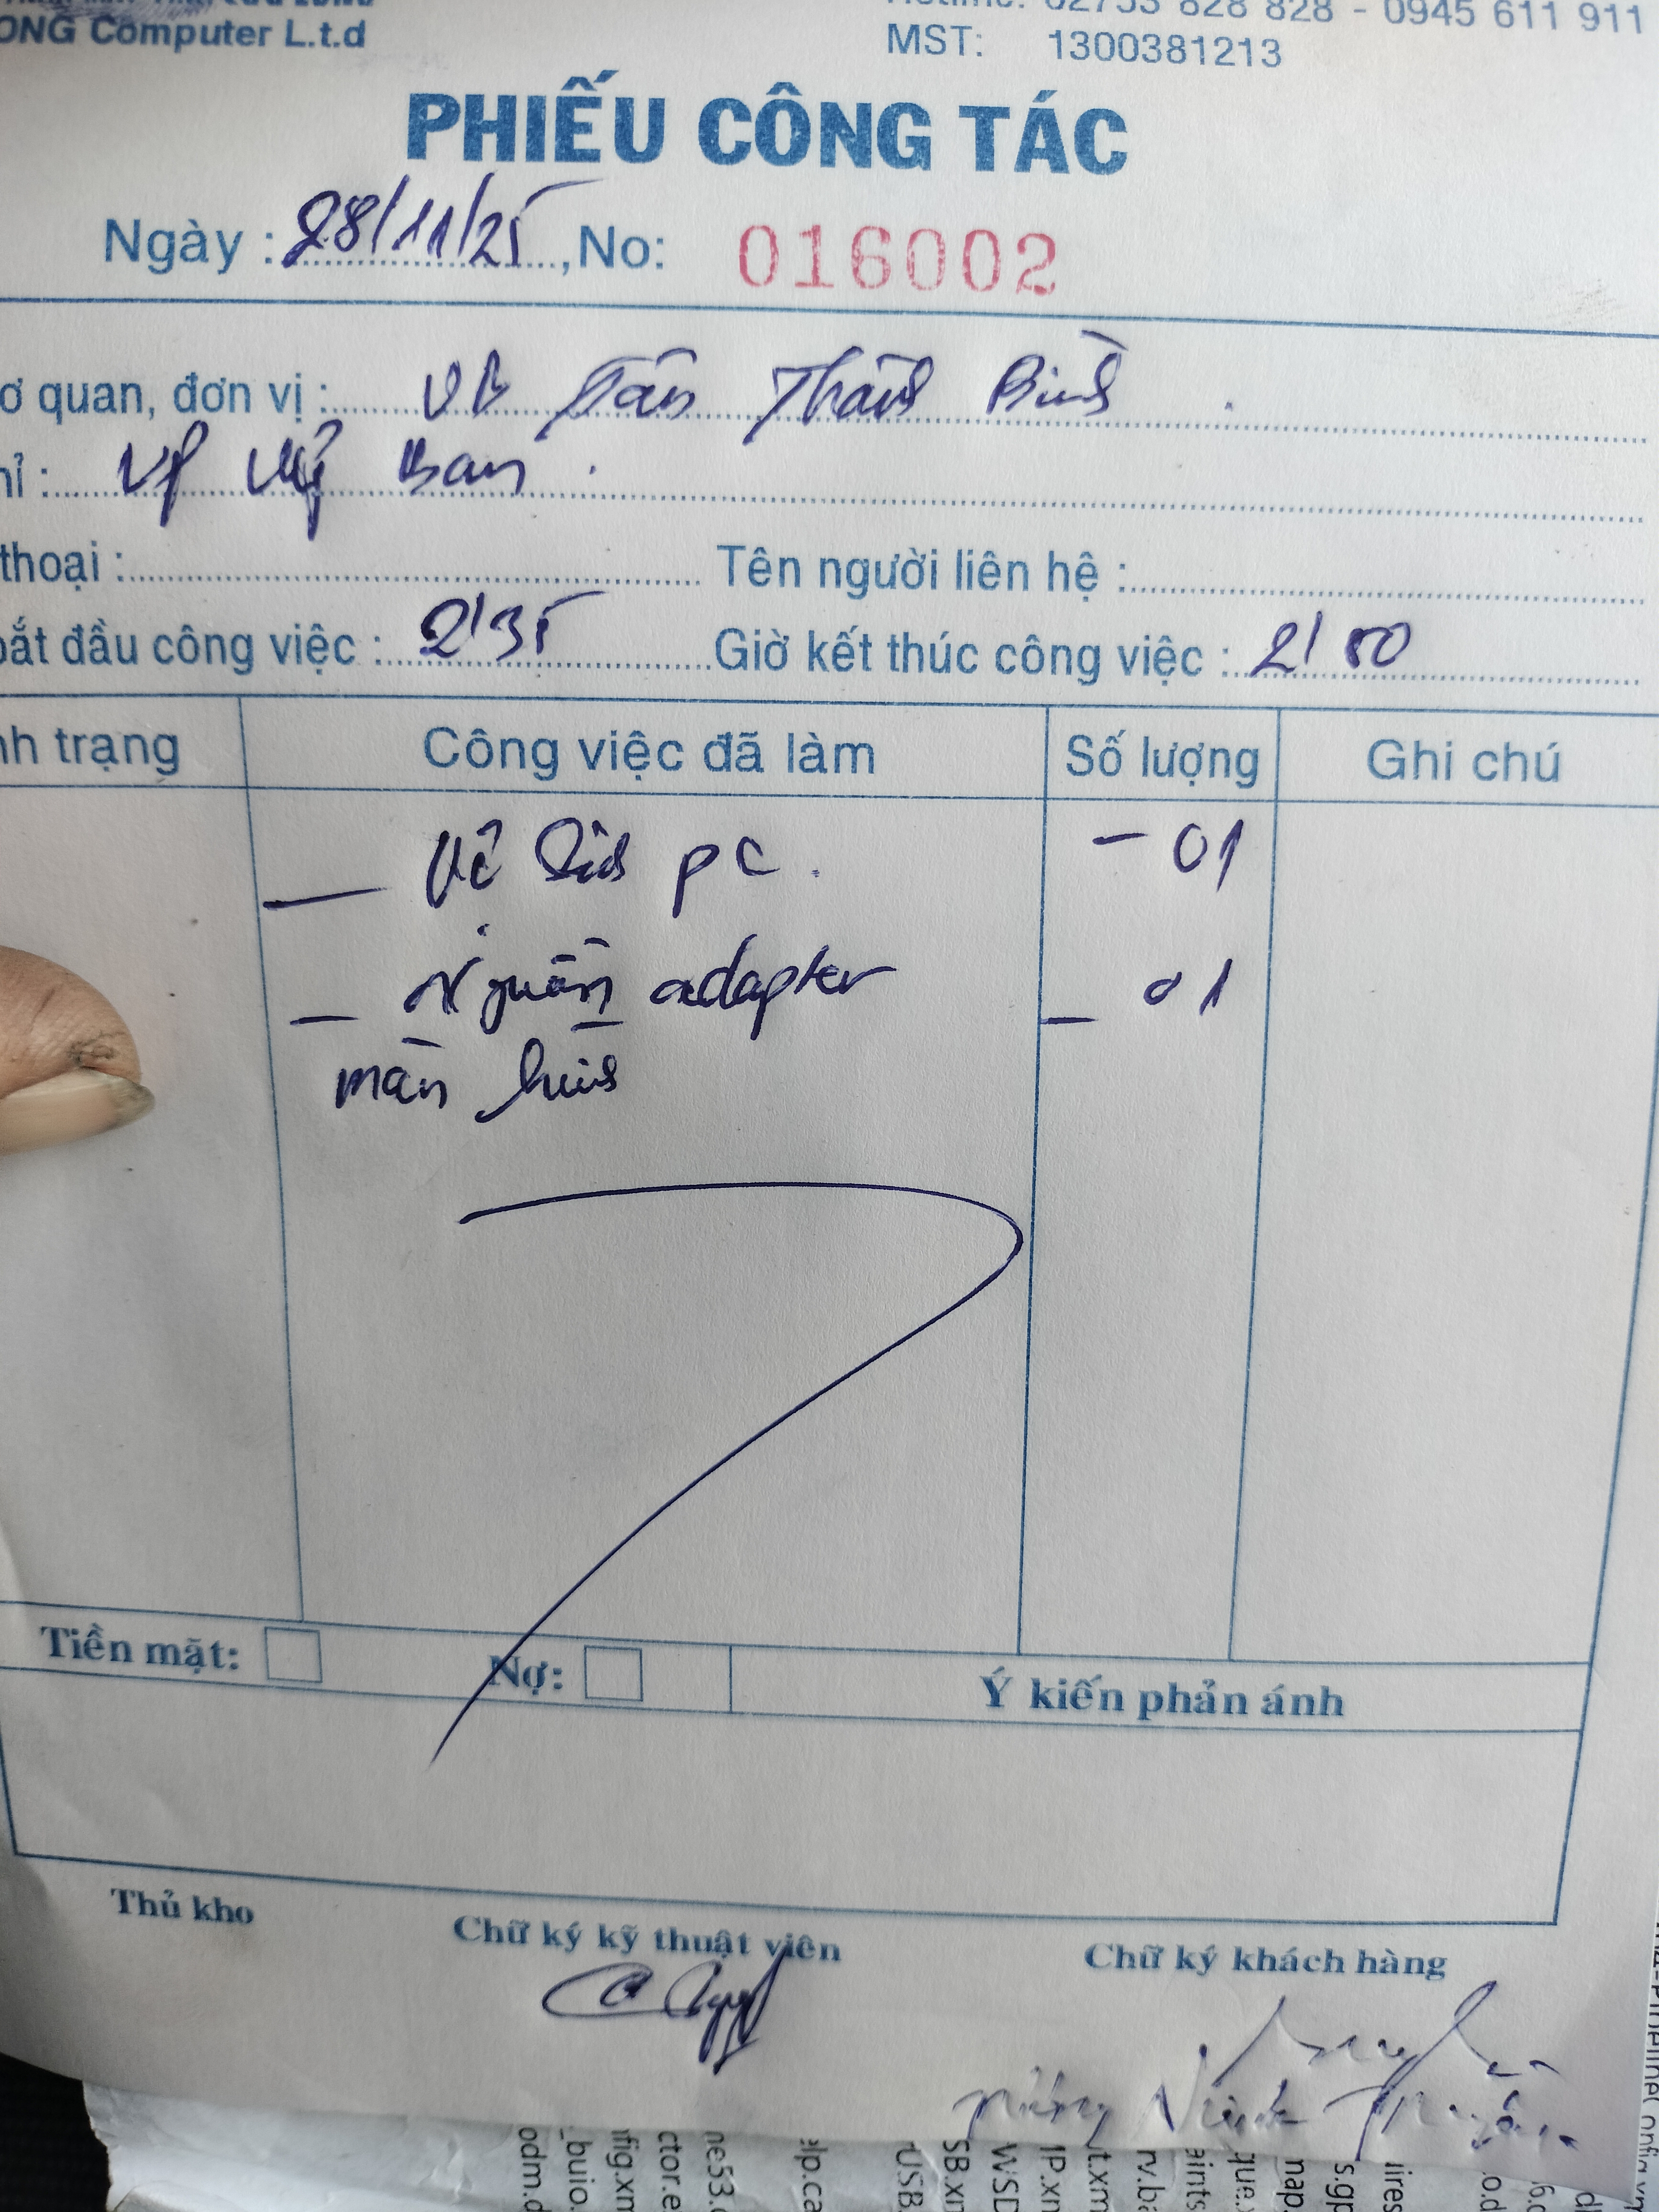 ONG Computer L.t.d
Hotline: 02753 828 828 - 0945 611 911
MST: 1300381213
PHIẾU CÔNG TÁC
Ngày : 28/11/25, No: 016002
ơ quan, đơn vị : UB Tân Thành Bình
hỉ : VP Uỷ Ban
thoại : Tên người liên hệ :
bắt đầu công việc : 2/35 Giờ kết thúc công việc : 2/50
nh trạng Công việc đã làm Số lượng Ghi chú
- Vệ Sinh PC. - 01
- Nguồn adapter - 01
màn hình
Tiền mặt: Nợ: Ý kiến phản ánh
Thủ kho Chữ ký kỹ thuật viên Chữ ký khách hàng